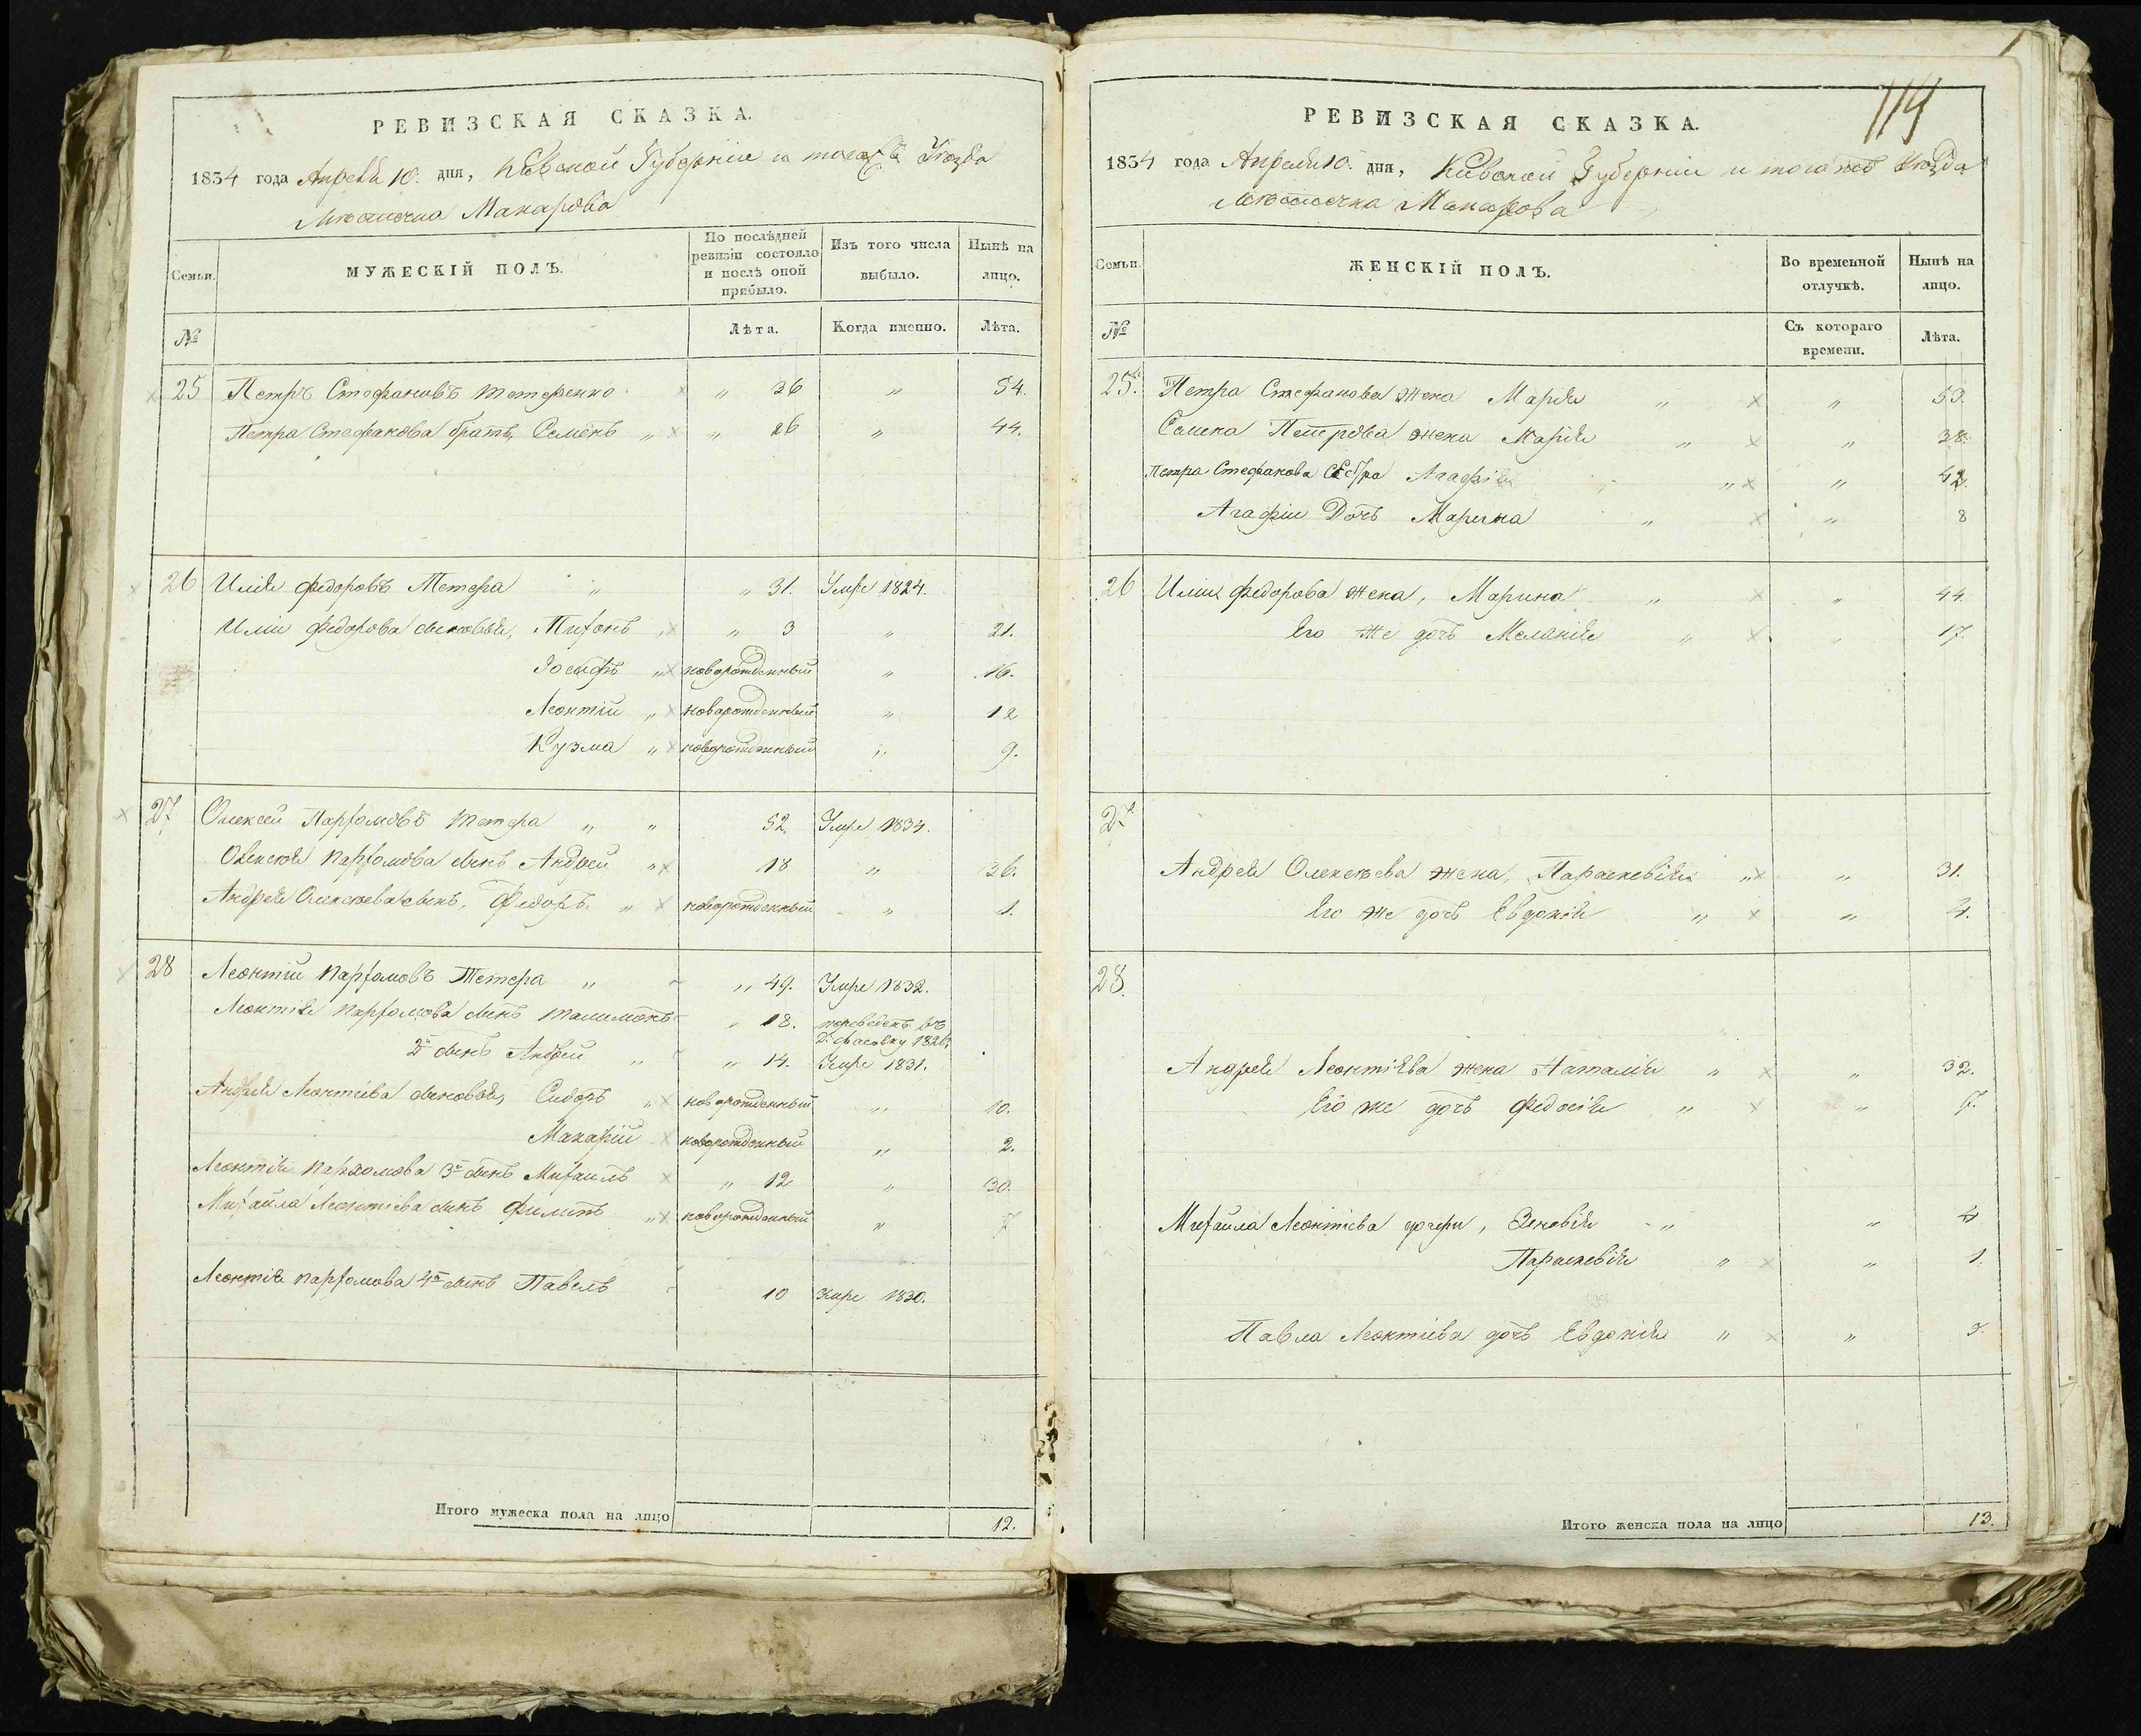 РЕВИЗСКАЯ СКАЗКА.
1834 года Апреля 10. дня, Кіевской Губерніи и того жъ Уезда
Местечка Макарова
Семьи.
МУЖЕСКІЙ ПОЛЪ.
По послѣдней ревизіи состояло и послѣ оной прибыло.
Изъ того числа выбыло.
Нынѣ на лицо.
№
Лѣта.
Когда именно.
Лѣта.
25 Петръ Стефановъ Тетеренко " 36 " 54.
Петра Стефанова братъ, Семенъ " " 26 " 44.
26 Илія Федоровъ Тетера " " 31. Умре 1824.
Иліи Федорова сыновья, Тихонъ " " 3 " 21.
Іосифъ " новорожденный " 16.
Леонтій " новорожденный " 12
Кузма " новорожденный " 9.
27 Олексей Парѳомовъ Тетера " " 52. Умре 1834.
Олексея Парѳомова сынъ Андрей " 18 " 36.
Андрея Олексеева сынъ, Федоръ " новорожденный " 1.
28 Леонтій Парѳомовъ Тетера " " 49. Умре 1832.
Леонтія Парѳомова сынъ " 18. переведенъ въ
2й сынъ Андрей " " 14. Умре 1831.
Андрея Леонтіева сыновья, Сидоръ " новорожденный " 10.
Макарій новорожденный " 2.
Леонтія Парѳомова 3й сынъ Михаилъ " 12 " 30.
Михаила Леонтіева сынъ Филипъ " новорожденный " 7
Леонтія Парѳомова 4й сынъ Павелъ 10 Умре 1830.
Итого мужеска пола на лицо 12.
119
РЕВИЗСКАЯ СКАЗКА.
1834 года Апреля 10. дня, Кіевской Губерніи и того жъ Уезда
Местечка Макарова
Семьи.
ЖЕНСКІЙ ПОЛЪ.
Во временной отлучкѣ.
Нынѣ на лицо.
№
Съ котораго времени.
Лѣта.
25. Петра Стефанова жена Марія " " 53.
Семена Петрова жена Марія " " 38.
Петра Стефанова Сестра Агафія " " 42.
Агафіи Дочь Марина " " 8
26 Иліи Федорова жена, Марина " " 44.
Его же дочь Меланія " " 17.
27
Андрея Олексеева жена, Параскевія " " 31.
Его же дочь Евдокія " " 4.
28.
Андрея Леонтіева жена Наталія " " 32.
Его же дочь Федосія " " 7.
Михаила Леонтіева дочери, Зеновія " " 4
Параскевія " " 1.
Павла Леонтіева дочь Евдокія " "
Итого женска пола на лицо 13.